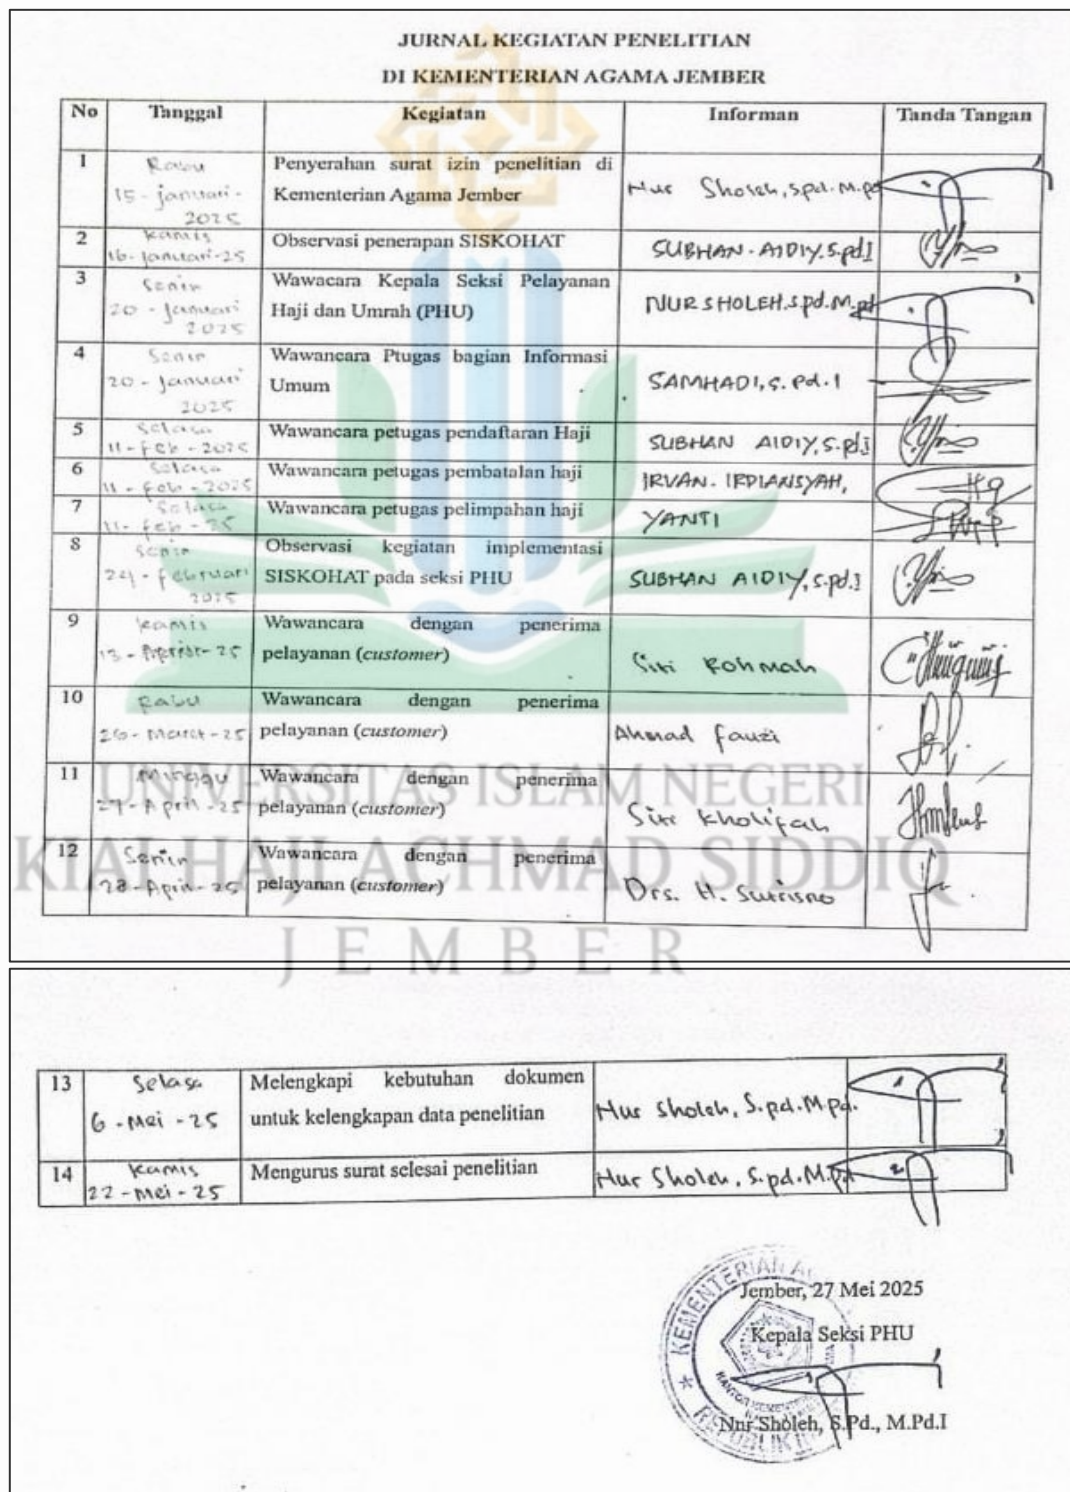 JURNAL KEGIATAN PENELITIAN
DI KEMENTERIAN AGAMA JEMBER
No Tanggal Kegiatan Informan Tanda Tangan
1 Rabu 15-januari-2025 Penyerahan surat izin penelitian di Kementerian Agama Jember Nur Sholeh, spd. M.pd
2 Kamis 16-januari-25 Observasi penerapan SISKOHAT SUBHAN. AIDIY. S.pd.I
3 Senin 20-januari 2025 Wawacara Kepala Seksi Pelayanan Haji dan Umrah (PHU) NUR SHOLEH. spd. M.pd
4 Senin 20-januari 2025 Wawancara Ptugas bagian Informasi Umum SAMHADI, S. Pd. I
5 Selasa 11-feb-2025 Wawancara petugas pendaftaran Haji SUBHAN AIDIY, S.pd.I
6 Selasa 11-feb-2025 Wawancara petugas pembatalan haji IRVAN. IRDIANSYAH,
7 Selasa 11-feb-25 Wawancara petugas pelimpahan haji YANTI
8 Senin 24-februari 2025 Observasi kegiatan implementasi SISKOHAT pada seksi PHU SUBHAN AIDIY, S.pd.I
9 Kamis 13- -25 Wawancara dengan penerima pelayanan (customer) Siti Rohmah
10 Rabu 26-Maret-25 Wawancara dengan penerima pelayanan (customer) Ahmad fauzi
11 Minggu 27-April-25 Wawancara dengan penerima pelayanan (customer) Siti Kholifah
12 Senin 28-April-25 Wawancara dengan penerima pelayanan (customer) Drs. H. Sutrisno
UNIVERSITAS ISLAM NEGERI
KIAI HAJI ACHMAD SIDDIQ
JEMBER
13 Selasa 6-Mei-25 Melengkapi kebutuhan dokumen untuk kelengkapan data penelitian Nur Sholeh, S.pd. M.pd.
14 Kamis 22-Mei-25 Mengurus surat selesai penelitian Nur Sholeh, S.pd. M.pd
Jember, 27 Mei 2025
Kepala Seksi PHU
Nur Sholeh, S.Pd., M.Pd.I
KEMENTERIAN AGAMA